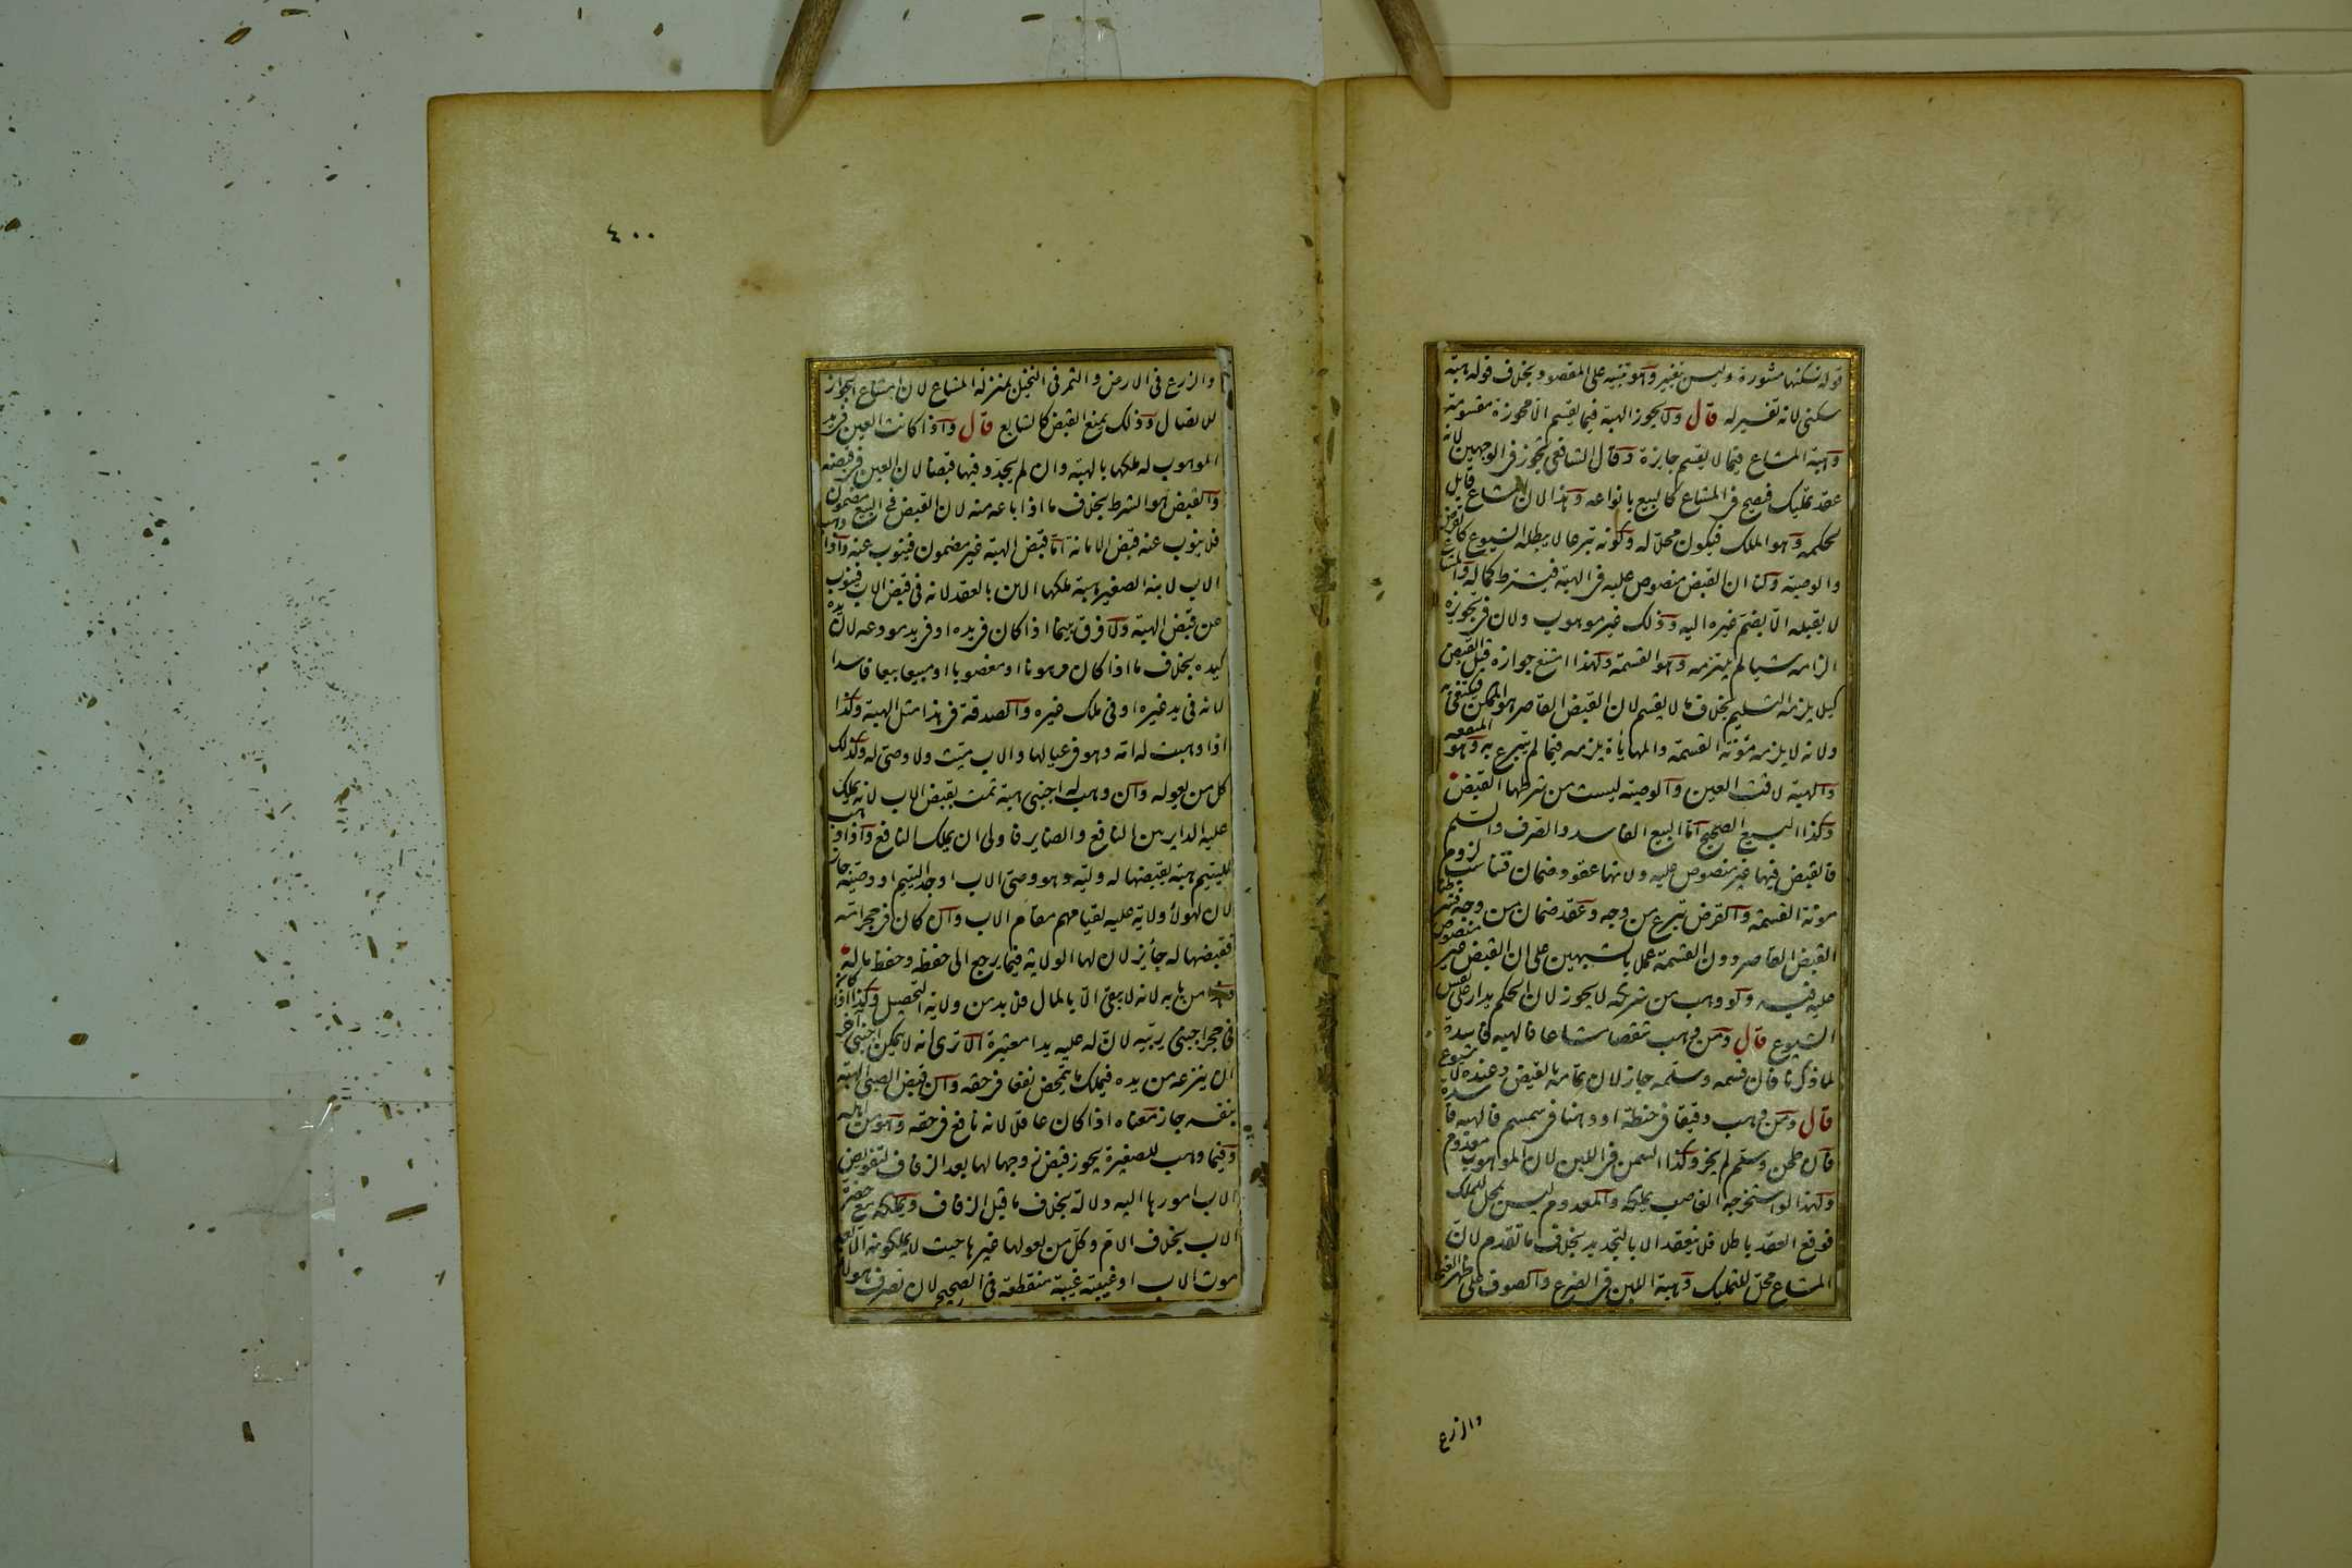 قوله تسكنها مشورة وليس بتفسير وهو تنبيه على المقصود بخلاف قوله هبة
سكنى لانه تفسير له قال ولا يجوز الهبة فيما يقسم الا محوزة مقسومة
وهبة المشاع فيما لا يقسم جايزة وقال الشافعي يجوز في الوجهين لانه
عقد تمليك فيصح في المشاع كالبيع بانواعه وهذا لان المشاع قابل
لحكمه وهو الملك فيكون محلا له وكونه تبرعا لا يبطله الشيوع كالقرض
والوصية ولنا ان القبض منصوص عليه في الهبة فيشترط كماله والمشاع
لا يقبله الا بضم غيره اليه وذلك غير موهوب ولان في تجويزه
الزامه شيا لم يلتزمه وهو القسمة ولهذا امتنع جوازه قبل القبض
كيلا يلزمه التسليم بخلاف ما لا يقسم لان القبض القاصر هو الممكن فيكتفى به
ولانه لا يلزمه مؤنة القسمة والمهاياة يلزمه فيما لم يتبرع به وهو المنفعة
والهبة لاقت العين والوصية ليست من شرطها القبض
وكذا البيع الصحيح اما البيع الفاسد والصرف والسلم
فالقبض فيها غير منصوص عليه ولانها عقود ضمان فتناسب لزوم
مونة القسمة والقرض تبرع من وجه وعقد ضمان من وجه فشرطنا
القبض القاصر دون القسمة عملا بالشبهين على ان القبض غير منصوص
عليه فيه ولو وهب من شريكه لا يجوز لان الحكم يدار على نفس
الشيوع قال ومن وهب شقصا مشاعا فالهبة فاسدة
لما ذكرنا فان قسمه وسلمه جاز لان تمامه بالقبض وعنده لا شيوع
قال ومن وهب دقيقا في حنطة او دهنا في سمسم فالهبة فاسدة
فان طحن وسلم لم يجز وكذا السمن في اللبن لان الموهوب معدوم
ولهذا لو استخرجه الغاصب يملكه والمعدوم ليس بمحل للملك
فوقع العقد باطلا فلا ينعقد الا بالتجديد بخلاف ما تقدم لان
المشاع محل للتمليك وهبة اللبن في الضرع والصوف على ظهر الغنم
والزرع
٤٠٠
والزرع في الارض والثمر في النخيل بمنزلة المشاع لان امتناع الجواز
للاتصال وذلك يمنع القبض كالشايع قال واذا كانت العين في يد
الموهوب له ملكها بالهبة وان لم يجدد فيها قبضا لان العين في قبضه
والقبض هو الشرط بخلاف ما اذا باعه منه لان القبض في البيع مضمون
فلا ينوب عنه قبض الامانة اما قبض الهبة غير مضمون فينوب عنه واذا وهب
الاب لابنه الصغير هبة ملكها الابن بالعقد لانه في قبض الاب فينوب
عن قبض الهبة ولا فرق بينما اذا كان في يده او في يد مودعه لان يده
كيده بخلاف ما اذا كان مرهونا او مغصوبا او مبيعا بيعا فاسدا
لانه في يد غيره او في ملك غيره والصدقة في هذا مثل الهبة وكذا
اذا وهبت له امه وهو في عيالها والاب ميت ولا وصى له وكذلك
كل من يعوله وان وهب له اجنبي هبة تمت بقبض الاب لانه يملك
عليه الداير بين النافع والضاير فاولى ان يملك النافع واذا وهب
لليتيم هبة يقبضها له وليه وهو وصي الاب او جد اليتيم او وصيه جاز
لان لهولاء ولاية عليه لقيامهم مقام الاب وان كان في حجر امه
فقبضها له جائز لان لها الولاية فيما يرجع الى حفظه وحفظ ماله
من بابه لانه لا يبقى الا بالمال فلا بد من ولاية التحصيل وكذا اذا كان
في حجر اجنبي يربيه لان له عليه يدا معتبرة الا ترى انه لا يتمكن اجنبي اخر
ان ينزعه من يده فيملك ما يتمحض نفعا في حقه وان قبض الصبي الهبة
بنفسه جاز معناه اذا كان عاقلا لانه نافع في حقه وهو من اهله
وفيما وهب للصغيرة يجوز قبض زوجها لها بعد الزفاف لتفويض
الاب امورها اليه دلالة بخلاف ما قبل الزفاف ويملكه مع حضرة
الاب بخلاف الام وكل من يعولها غيرها حيث لا يملكونه الا بعد
موت الاب او غيبته غيبة منقطعة في الصحيح لان تصرف هولاء